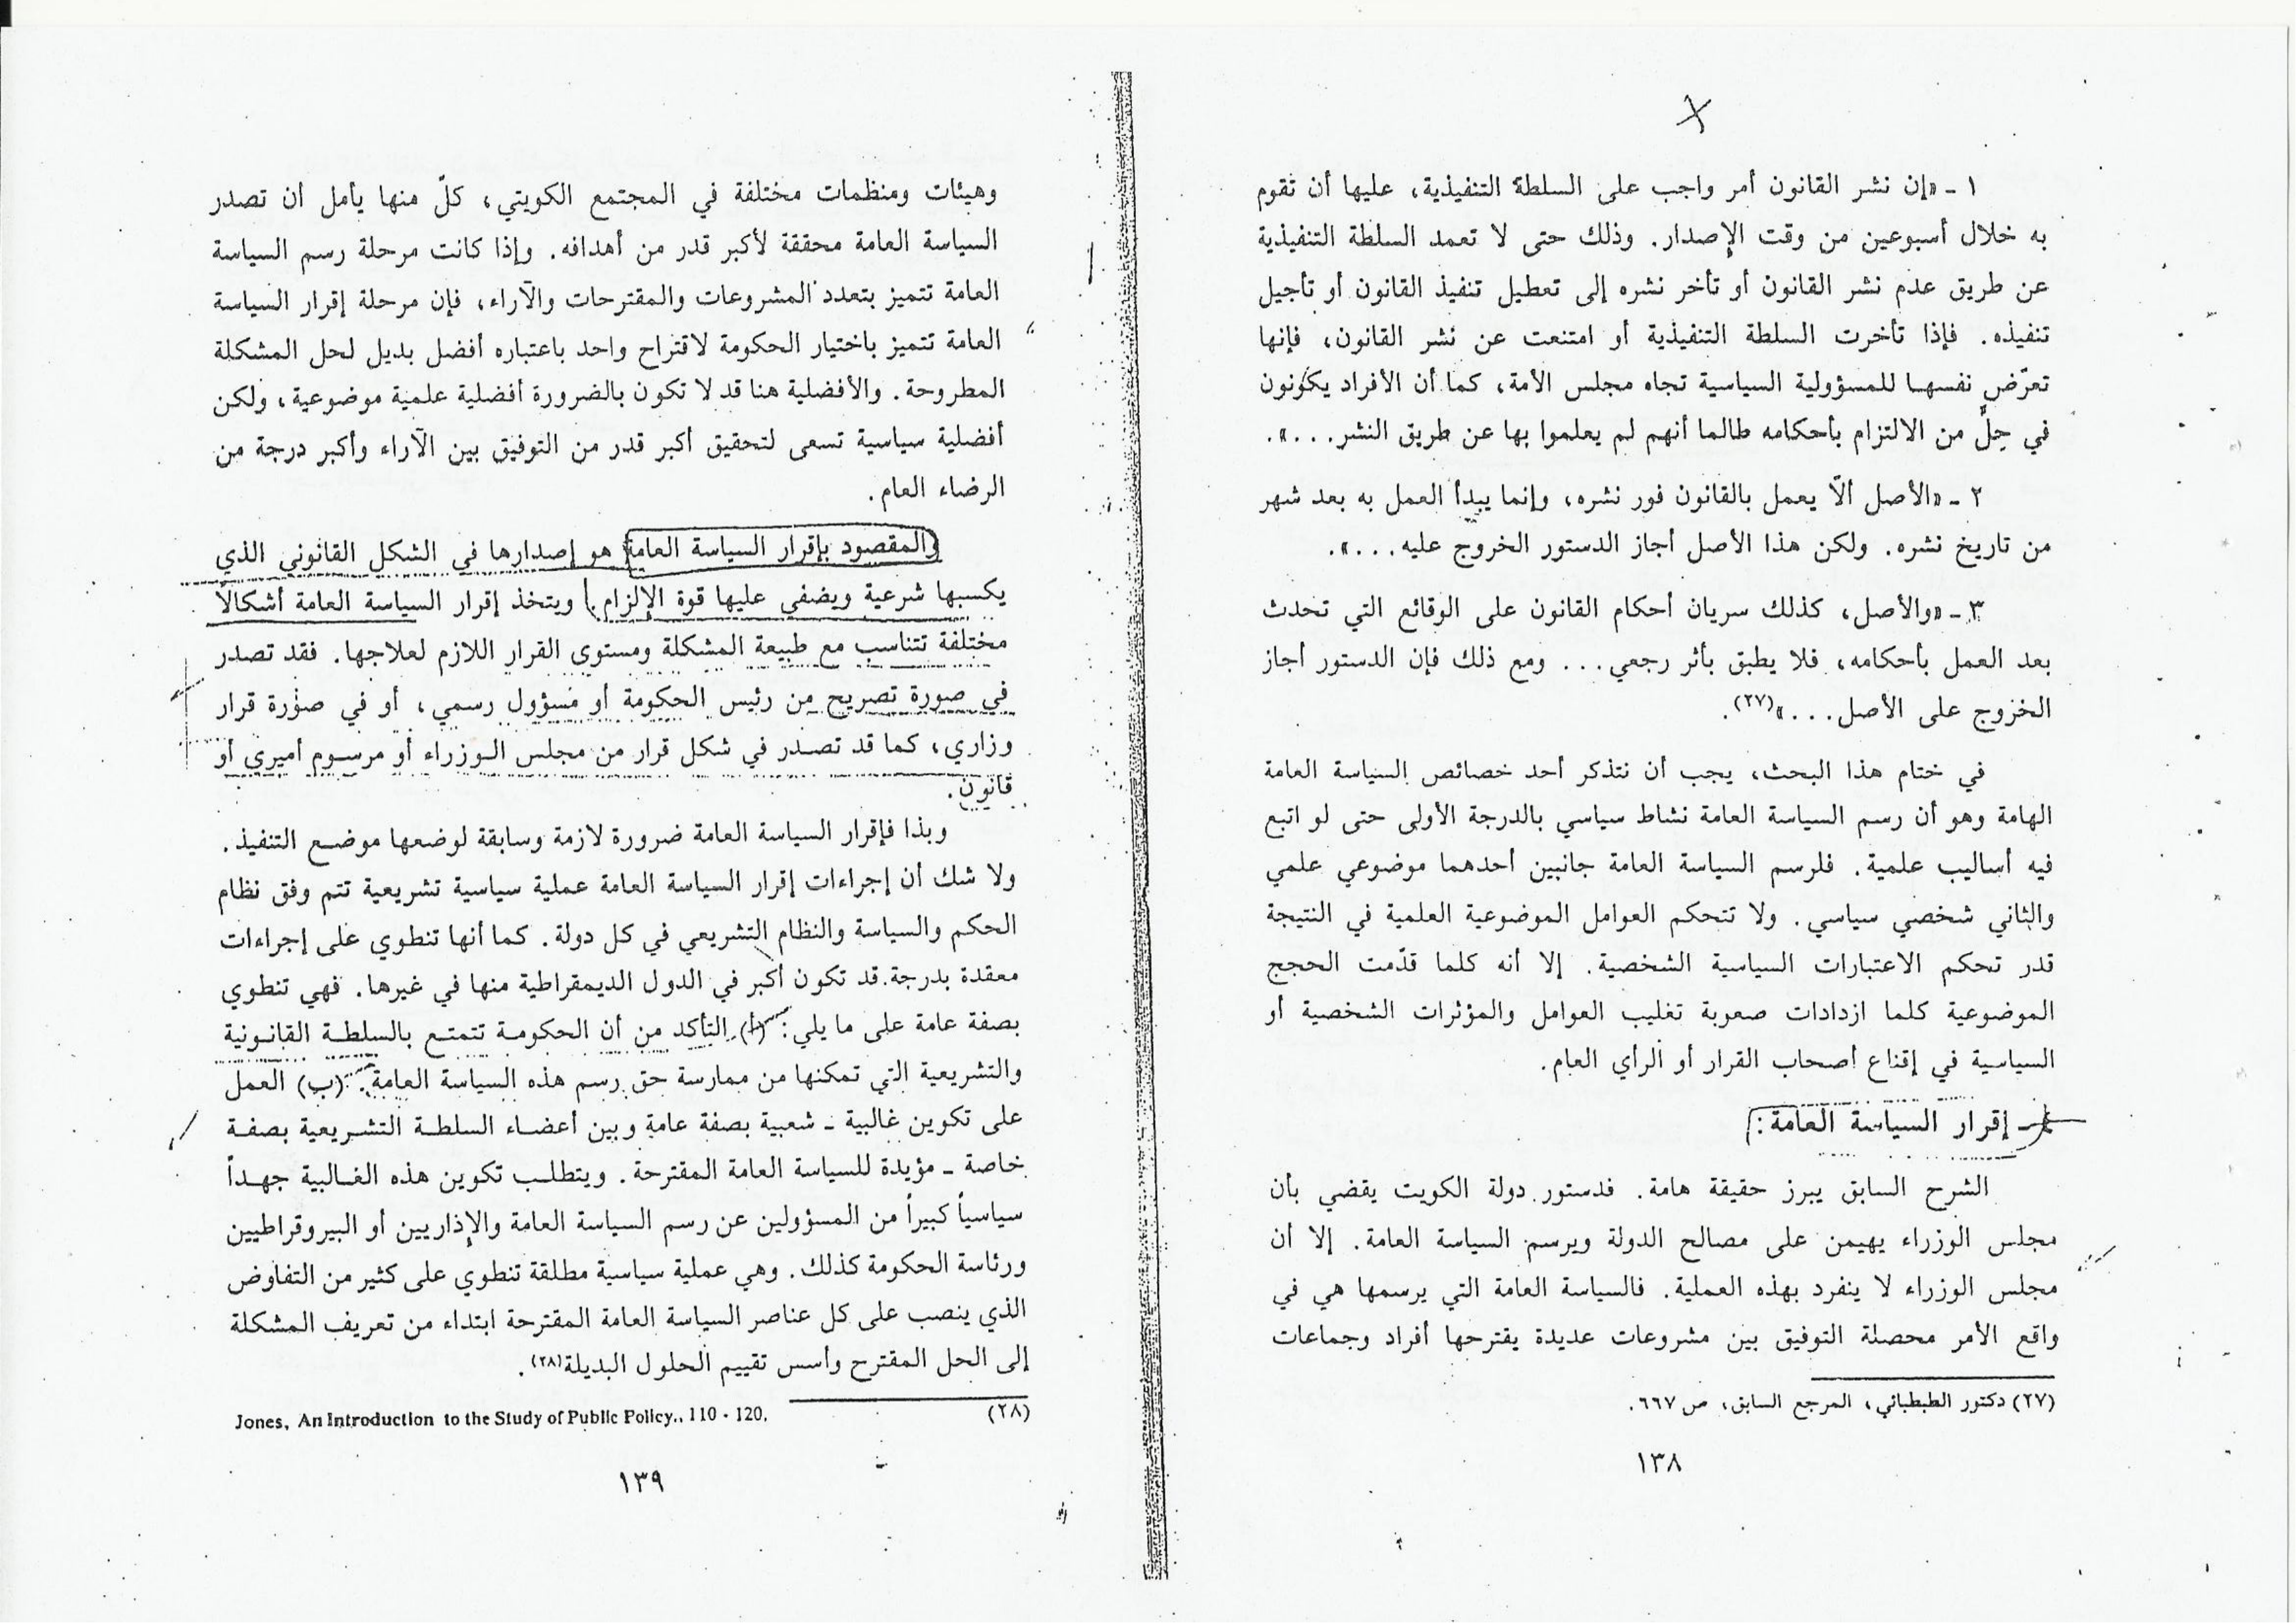 ١ - «إن نشر القانون أمر واجب على السلطة التنفيذية، عليها أن تقوم
به خلال أسبوعين من وقت الإصدار. وذلك حتى لا تعمد السلطة التنفيذية
عن طريق عدم نشر القانون أو تأخر نشره إلى تعطيل تنفيذ القانون أو تأجيل
تنفيذه. فإذا تأخرت السلطة التنفيذية أو امتنعت عن نشر القانون، فإنها
تعرّض نفسها للمسؤولية السياسية تجاه مجلس الأمة، كما أن الأفراد يكونون
في حِلٍّ من الالتزام بأحكامه طالما أنهم لم يعلموا بها عن طريق النشر...».
٢ - «الأصل ألاّ يعمل بالقانون فور نشره، وإنما يبدأ العمل به بعد شهر
من تاريخ نشره. ولكن هذا الأصل أجاز الدستور الخروج عليه...».
٣ - «والأصل، كذلك سريان أحكام القانون على الوقائع التي تحدث
بعد العمل بأحكامه، فلا يطبق بأثر رجعي... ومع ذلك فإن الدستور أجاز
الخروج على الأصل...»(٢٧).
في ختام هذا البحث، يجب أن نتذكر أحد خصائص السياسة العامة
الهامة وهو أن رسم السياسة العامة نشاط سياسي بالدرجة الأولى حتى لو اتبع
فيه أساليب علمية. فلرسم السياسة العامة جانبين أحدهما موضوعي علمي
والثاني شخصي سياسي. ولا تتحكم العوامل الموضوعية العلمية في النتيجة
قدر تحكم الاعتبارات السياسية الشخصية. إلا أنه كلما قدّمت الحجج
الموضوعية كلما ازدادات صعوبة تغليب العوامل والمؤثرات الشخصية أو
السياسية في إقناع أصحاب القرار أو الرأي العام.
إقرار السياسة العامة:
الشرح السابق يبرز حقيقة هامة. فدستور دولة الكويت يقضي بأن
مجلس الوزراء يهيمن على مصالح الدولة ويرسم السياسة العامة. إلا أن
مجلس الوزراء لا ينفرد بهذه العملية. فالسياسة العامة التي يرسمها هي في
واقع الأمر محصلة التوفيق بين مشروعات عديدة يقترحها أفراد وجماعات
(٢٧) دكتور الطبطبائي، المرجع السابق، ص ٦٦٧.
١٣٨
وهيئات ومنظمات مختلفة في المجتمع الكويتي، كلّ منها يأمل أن تصدر
السياسة العامة محققة لأكبر قدر من أهدافه. وإذا كانت مرحلة رسم السياسة
العامة تتميز بتعدد المشروعات والمقترحات والآراء، فإن مرحلة إقرار السياسة
العامة تتميز باختيار الحكومة لاقتراح واحد باعتباره أفضل بديل لحل المشكلة
المطروحة. والأفضلية هنا قد لا تكون بالضرورة أفضلية علمية موضوعية، ولكن
أفضلية سياسية تسعى لتحقيق أكبر قدر من التوفيق بين الآراء وأكبر درجة من
الرضاء العام.
والمقصود بإقرار السياسة العامة هو إصدارها في الشكل القانوني الذي
يكسبها شرعية ويضفي عليها قوة الإلزام. ويتخذ إقرار السياسة العامة أشكالاً
مختلفة تتناسب مع طبيعة المشكلة ومستوى القرار اللازم لعلاجها. فقد تصدر
في صورة تصريح من رئيس الحكومة أو مسؤول رسمي، أو في صورة قرار
وزاري، كما قد تصدر في شكل قرار من مجلس الوزراء أو مرسوم أميري أو
قانون.
وبذا فإقرار السياسة العامة ضرورة لازمة وسابقة لوضعها موضع التنفيذ.
ولا شك أن إجراءات إقرار السياسة العامة عملية سياسية تشريعية تتم وفق نظام
الحكم والسياسة والنظام التشريعي في كل دولة. كما أنها تنطوي على إجراءات
معقدة بدرجة قد تكون أكبر في الدول الديمقراطية منها في غيرها. فهي تنطوي
بصفة عامة على ما يلي: (أ) التأكد من أن الحكومة تتمتع بالسلطة القانونية
والتشريعية التي تمكنها من ممارسة حق رسم هذه السياسة العامة. (ب) العمل
على تكوين غالبية - شعبية بصفة عامة وبين أعضاء السلطة التشريعية بصفة
خاصة - مؤيدة للسياسة العامة المقترحة. ويتطلب تكوين هذه الغالبية جهداً
سياسياً كبيراً من المسؤولين عن رسم السياسة العامة والإداريين أو البيروقراطيين
ورئاسة الحكومة كذلك. وهي عملية سياسية مطلقة تنطوي على كثير من التفاوض
الذي ينصب على كل عناصر السياسة العامة المقترحة ابتداء من تعريف المشكلة
إلى الحل المقترح وأسس تقييم الحلول البديلة(٢٨).
(٢٨) Jones, An Introduction to the Study of Public Policy., 110 - 120.
١٣٩